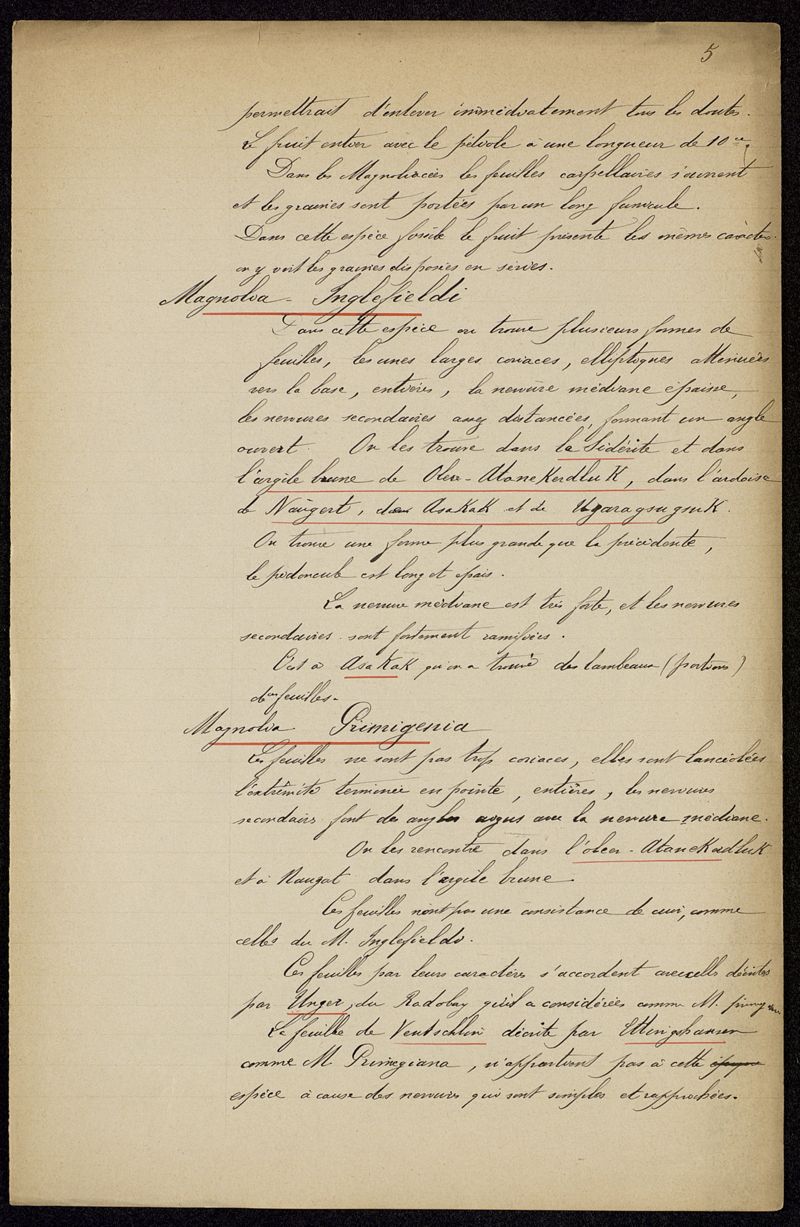 5
permettrait d'enlever immédiatement tous les doutes.
Le fruit entier avec le pétiole a une longueur de 10 ce
Dans les Magnoliacées les feuilles carpellaires s'ouvrent
et les graines sont portées par un long funicule.
Dans cette espèce fossile le fruit présente les mêmes caractè
on y voit les graines disposées en séries.
Magnolia - Inglefieldi
Dans cette espèce on trouve plusieurs formes de
feuilles, les unes larges coriaces, elliptiques attenuées
vers la base, entières, la nervure médiane épaisse,
les nervures secondaires assez distancées, formant un angle
ouvert. On les trouve dans la Sidérite et dans
l'argile brune de Ober-Atanekerdluk, dans l'ardoise
de Naügert, de Asakak et de Ugaragsugsuk.
On trouve une forme plus grande que la précédente,
le pédoncule est long et épais.
La nervure médiane est très forte, et les nervures
secondaires sont fortement ramifiées.
C'est à Asakak qu'on a trouvé des lambeaux (portions)
de feuilles.
Magnolia Primigenia
Les feuilles ne sont pas trop coriaces, elles sont lancéolées
l'extrêmité terminée en pointe, entières, les nervures
secondaires font des angles aigus avec la nervure médiane.
On les rencontre dans l'ober-Atanekadluk
et à Naugat dans l'argile brune
Ces feuilles n'ont pas une consistance de cuir, comme
celles du M. Inglefieldi.
Ces feuilles par leurs caractères s'accordent avec celles décrites
par Unger, du Radobay qu'il a considérées comme M. primig
La feuille de Ventschlin décrite par Ettingshausen
comme M Primegiana, n'appartient pas à cette
espèce à cause des nervures qui sont simples et rapprochées.